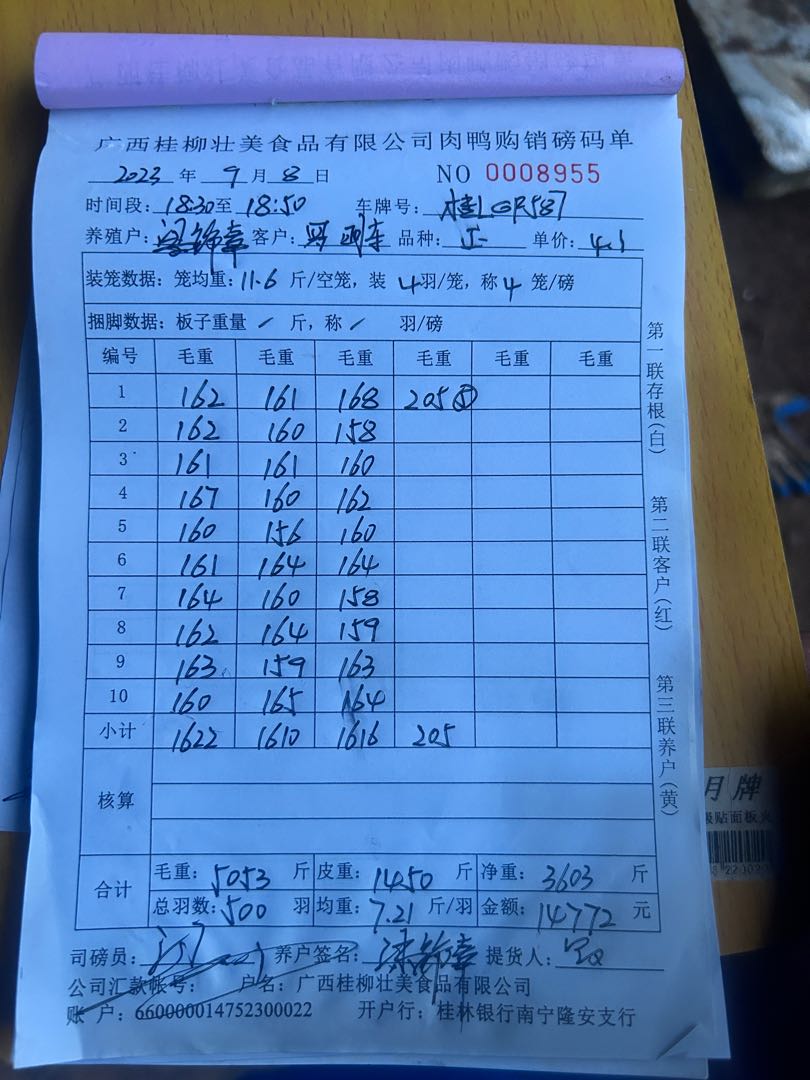 广西桂柳壮美食品有限公司肉鸭购销磅码单
2023 年 9 月 8 日 NO 0008955
时间段: 18:30 至 18:50 车牌号: 桂LGR587
养殖户: 客户: 品种: 正 单价: 4.1
装笼数据: 笼均重: 11.6 斤/空笼, 装 4 羽/笼, 称 4 笼/磅
捆脚数据: 板子重量 / 斤, 称 / 羽/磅
编号 毛重 毛重 毛重 毛重 毛重 毛重
1 162 161 168 205⑤
2 162 160 158
3 161 161 160
4 167 160 162
5 160 156 160
6 161 164 164
7 164 160 158
8 162 164 159
9 163 159 163
10 160 165 164
小计 1622 1610 1616 205
核算
合计 毛重: 5053 斤 皮重: 1450 斤 净重: 3603 斤
总羽数: 500 羽 均重: 7.21 斤/羽 金额: 14772 元
司磅员: 养户签名: 提货人:
公司汇款帐号: 户名: 广西桂柳壮美食品有限公司
账 户: 660000014752300022 开户行: 桂林银行南宁隆安支行
第一联存根(白)
第二联客户(红)
第三联养户(黄)
月牌
贴面板